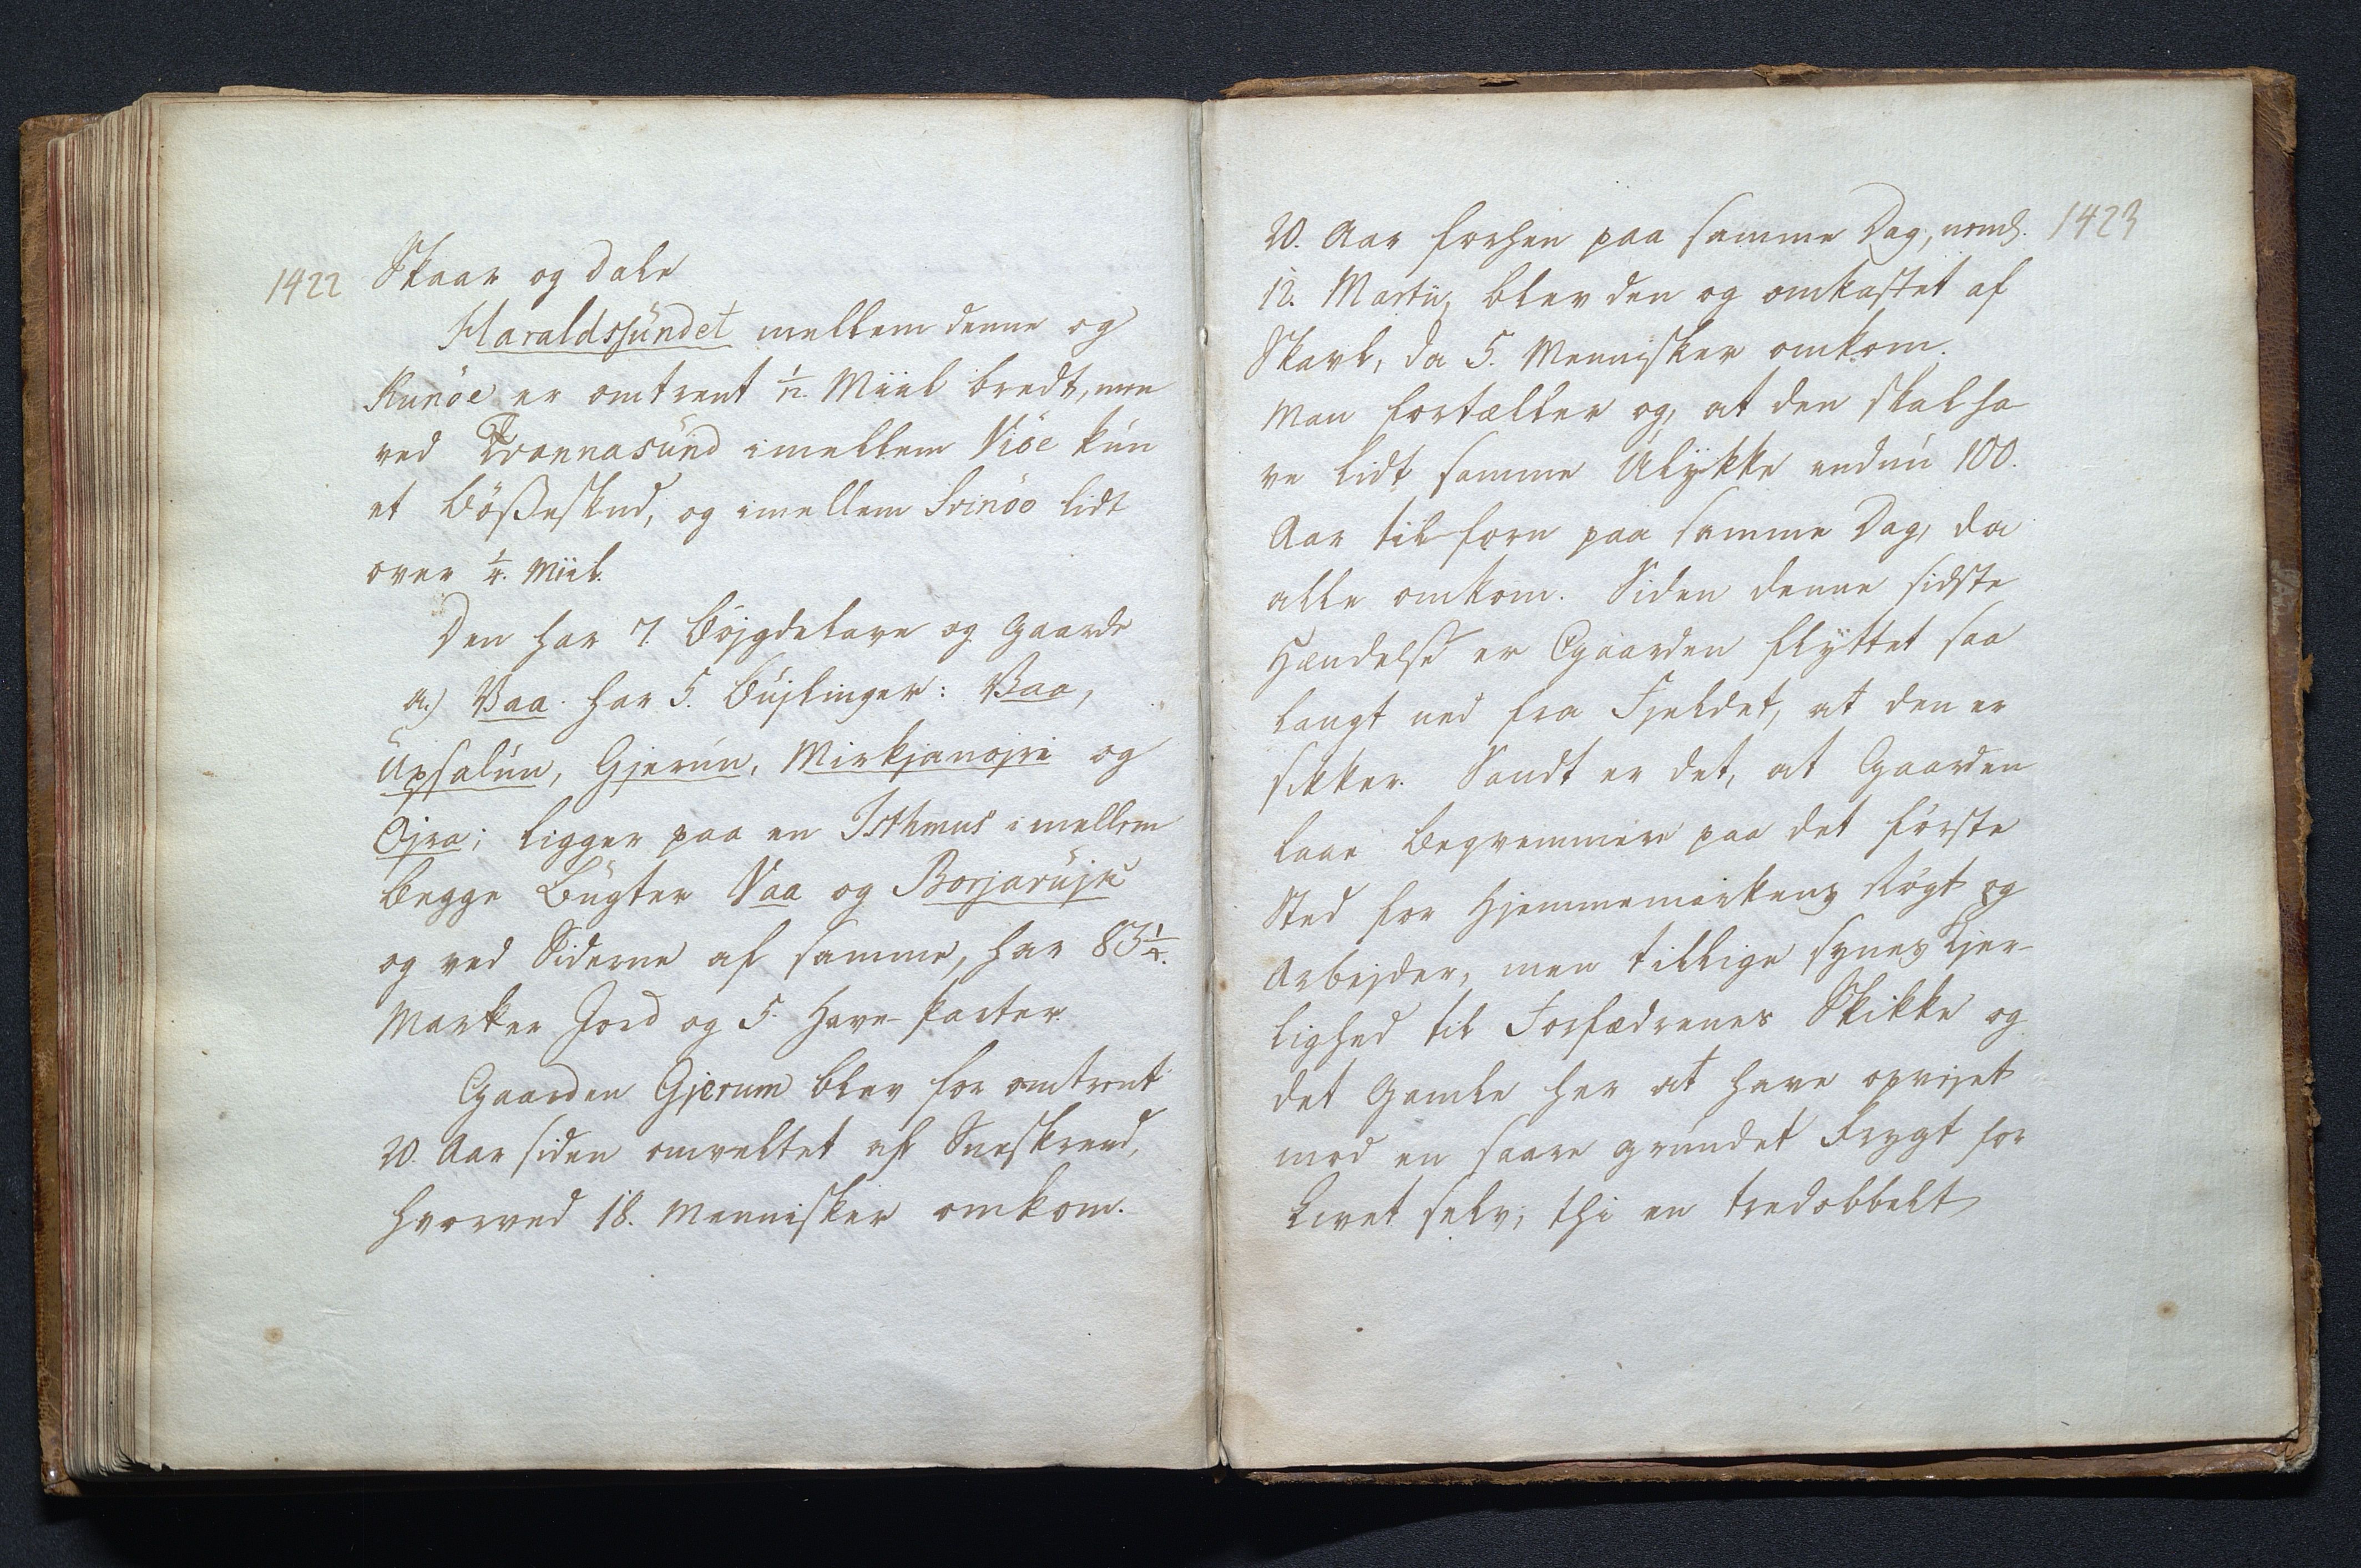 1422
Skaar og Dale
Haraldssundet mellem denne og
Kunöe er omtrent 1/12. Miil bredt, men
ved Qvannasund imellem Viöe kun
et Bösseskud, og imellem Svinöe lidt
over 1/4. Miil.
Den har 7. Böjgdelave og Gaarde
a.) Vaa. har 5. Bujlinger: Vaa,
Upsalun, Gjerun, Mirkjanojri og
Ojra; ligger paa en Isthmus imellem
begge Bugter Vaa og Borjarujk
og ved Siderne af samme, har 83 1/4.
Marker Jord og 5. Have-Parter.
Gaarden Gjerum blev for omtrent
20. Aar siden omveltet af Sneskred,
hvorved 18. Mennisker omkom.
1423
20. Aar forhen paa samme Dag, neml.
12. Martii, blev den og omkastet af
Skavl, da 5. Mennisker omkom.
Man fortæller og, at den skal ha-
ve lidt samme Ulykke endnu 100.
Aar tilforn paa samme Dag, da
alle omkom. Siden denne sidste
Hændelse er Gaarden flyttet saa
langt ned fra Fjeldet, at den er
sikker. Sandt er det, at Gaarden
laae beqvemmere paa det förste
Sted for Hjemmemarkens Rögt og
Arbejder, men tillige synes Kjer-
lighed til Forfædrenes Skikke og
det Gamle her at have opvejet
mod en saare grundet Frygt for
Livet selv; thi en tredobbelt